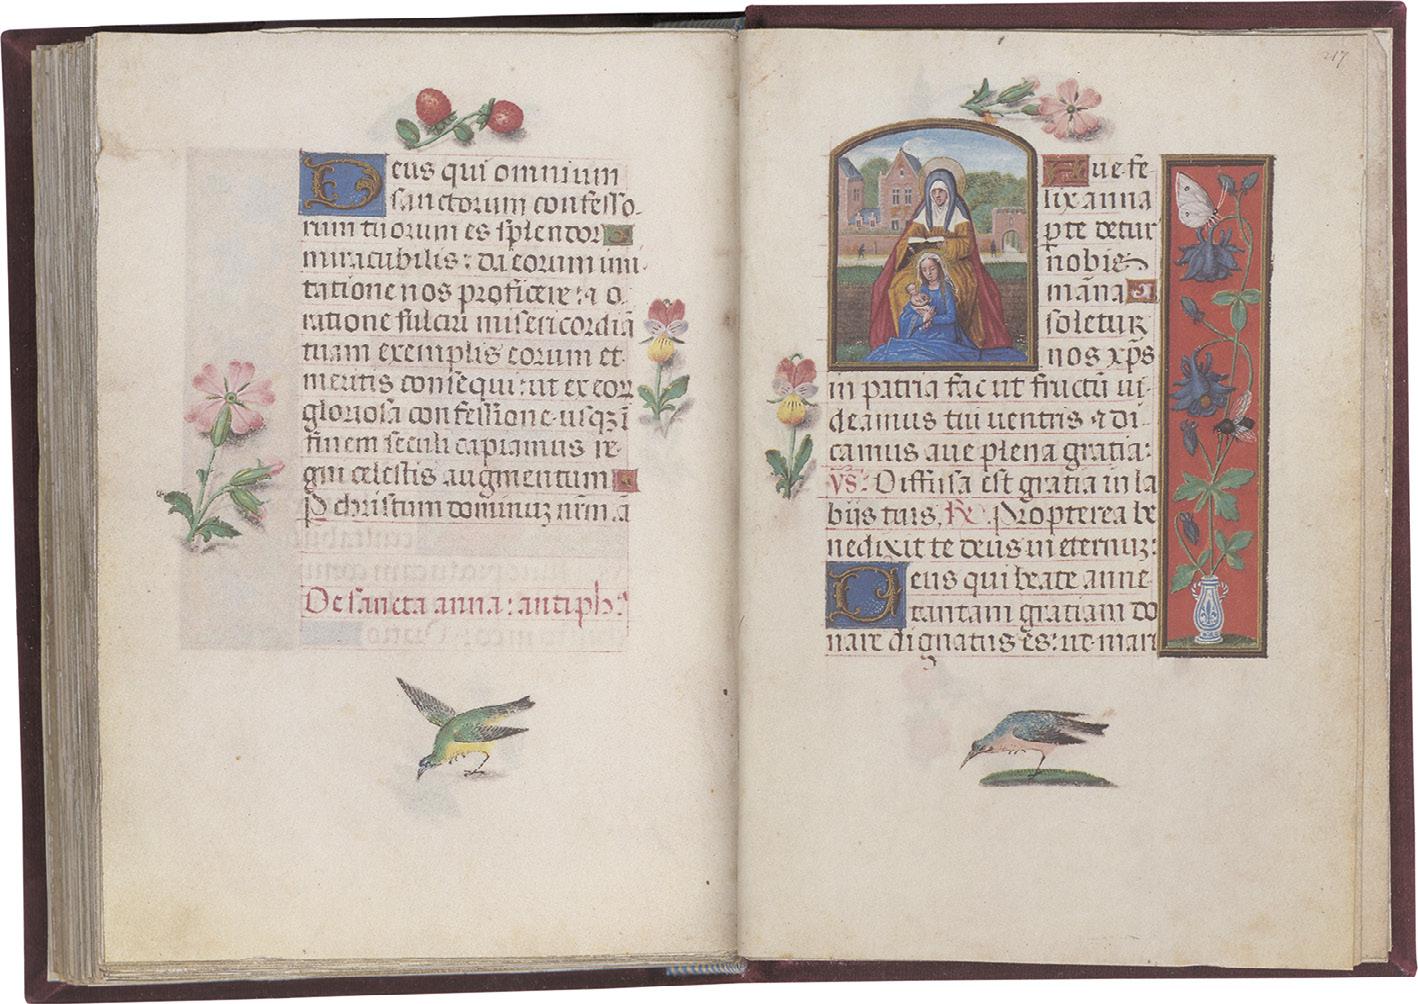 Deus qui omnium
sanctorum confesso-
rum tuorum es splendor
mirabilis: da eorum imi-
tatione nos proficere: ⁊ o-
ratione fulciri misericordiā
tuam exemplis eorum et
meritis consequi: ut ex eoꝝ
gloriosa confessione usqꝫ ī
finem seculi capiamus re-
gni celestis augmentum
P christum dominuꝫ nrm̄ ā
De sancta anna: antiph᷒
217
Aue fe-
lix anna
p̱ te detur
nobis
māna
soletur
nos xp̄s
in patria fac ut fructū ui-
deamus tui uentris ⁊ di-
camus aue plena gratia:
VS: Diffusa est gratia in la
bijs tuis. R͞. Propterea be
nedixit te deus in eternuꝫ:
Deus qui beate anne
tantam gratiam do
nare dignatus es: ut mari